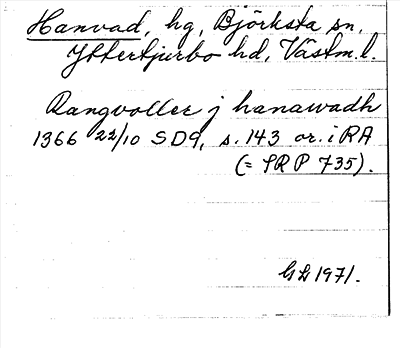 Hanvad, hg, Björksta sn,
Yttertjurbo hd, Västm. l.
Rangvoller j hanawadh
1366 22/10 SD9, s. 143 or. i RA
(= SRP 735).
GL 1971.